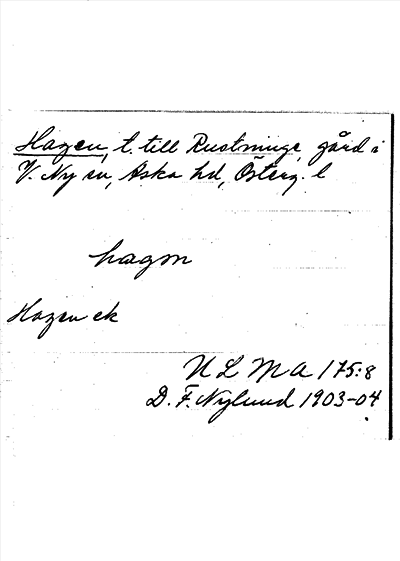 Hagen, t. till Rustninge, gård i
V. Ny sn, Aska hd, Österg. l
hagɷn
Hagen ek
U L M A 175:8
D. F. Nylund 1903-04